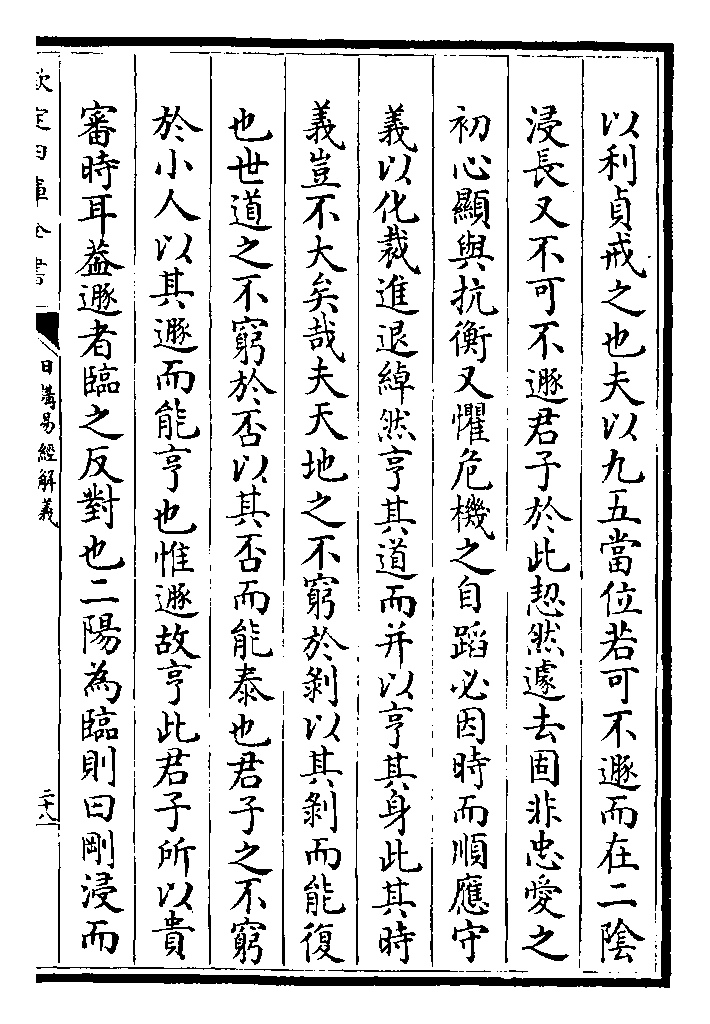 以利貞戒之也夫以九五當位若可不遯而在二隂
浸長又不可不遯君子於此恝然遽去固非忠愛之
初心顯與抗衡又懼危機之自蹈必因時而順應守
義以化裁進退綽然亨其道而并以亨其身此其時
義豈不大矣哉夫天地之不窮於剝以其剝而能復
也世道之不窮於否以其否而能泰也君子之不窮
於小人以其遯而能亨也惟遯故亨此君子所以貴
審時耳葢遯者臨之反對也二陽為臨則曰剛浸而
欽定四庫全書
日講易經解義
二十八